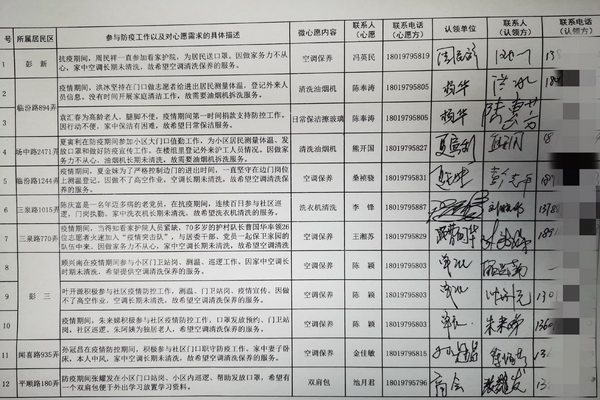 号 所属居民区 参与防疫工作以及对心愿需求的具体描述 微心愿内容 联系人（心愿） 联系电话（心愿） 认领单位 联系人（认领方） 联系电话（认领方）
1 彭新 抗疫期间，周民祥一直参加看家护院，为居民送口罩，因做家务力不从心，家中空调长期未清洗，故希望空调清洗保养的服务。 空调保养 冯英民 18019795819
2 临汾路894弄 疫情期间，洪冰坚持在门口做志愿者给进出居民测量体温、登记外来人员信息，没有时间开展家庭清洁工作，故需要油烟机拆洗服务。 清洗油烟机 陈奉涛 18019795805 杨华 洪冰
3 袁汇春为高龄老人，腿脚不便，疫情期间第一时间捐款支持防控工作，因行动不便，家中保洁有困难，故希望日常保洁服务。 日常保洁擦玻璃 陈奉涛 18019795805 杨华
4 场中路2471弄 夏寅利在防疫期间参加小区大门口值勤工作，为小区居民测量体温、发放口罩和做好防疫宣传工作。在楼组里登记外来护工人员情况。因做家务力不从心，油烟机长期未清洗。故希望油烟机拆洗服务。 清洗油烟机 熊开国 18019795805 夏寅利
5 临汾路1244弄 疫情期间，夏金妹为了严格控制边门的进出时间，一直坚守在边门岗位上测温登记。因做不了高空作业，空调长期未清洗，故希望空调清洗保养的服务。 空调保养 桑彬骏 18019795831
6 三泉路1015弄 陈庆富是一名年迈多病的老党员，在抗疫期间，连续百日参与社区巡逻、门岗执勤，家中洗衣机长期未清洗，故希望洗衣机清洗服务。 洗衣机清洗 李锋 18019795807
7 三泉路770弄 疫情期间，当得知看家护院人员紧缺，70多岁的护村队长曹国华率领26位志愿者火速加入“疫情突击队”，与居委干部、党员一起保卫家园的队伍中来。因做家务力不从心，故希望空调清洗服务。 空调保养 王湘苏 18019795829
8 彭三 顾兴南在疫情期间参与小区门卫站岗、测温、巡逻工作，因家中空调长时期未清洗，希望提供空调清洗服务。 空调保养 陈颖 18019795803
9 叶开源积极参与社区疫情防控工作，测温、门卫站岗、疫情宣传。因做不了高空作业，空调长期未清洗，故希望空调清洗保养的服务。 空调保养 陈颖 18019795803
10 疫情期间，朱来娣积极参与社区疫情防控工作，口罩发放预约、门卫站岗，社区巡逻，朱阿姨为独居老人，希望空调保养。 空调保养 陈颖 18019795803 朱来娣
11 闻喜路935弄 孙冠昌在疫情防控期间，积极参与社区门口职守防疫工作，家中妻子卧床，本人中风，家中空调长期未清洗，故希望空调清洗保养的服务。 空调保养 金佳敏 18019795815
12 平顺路180弄 防疫期间张耀发在小区门口站岗、小区内巡逻、帮助发放口罩，希望有一个双肩包便于外出学习放置学习资料。 双肩包 地月君 18019795796 商会 张耀发